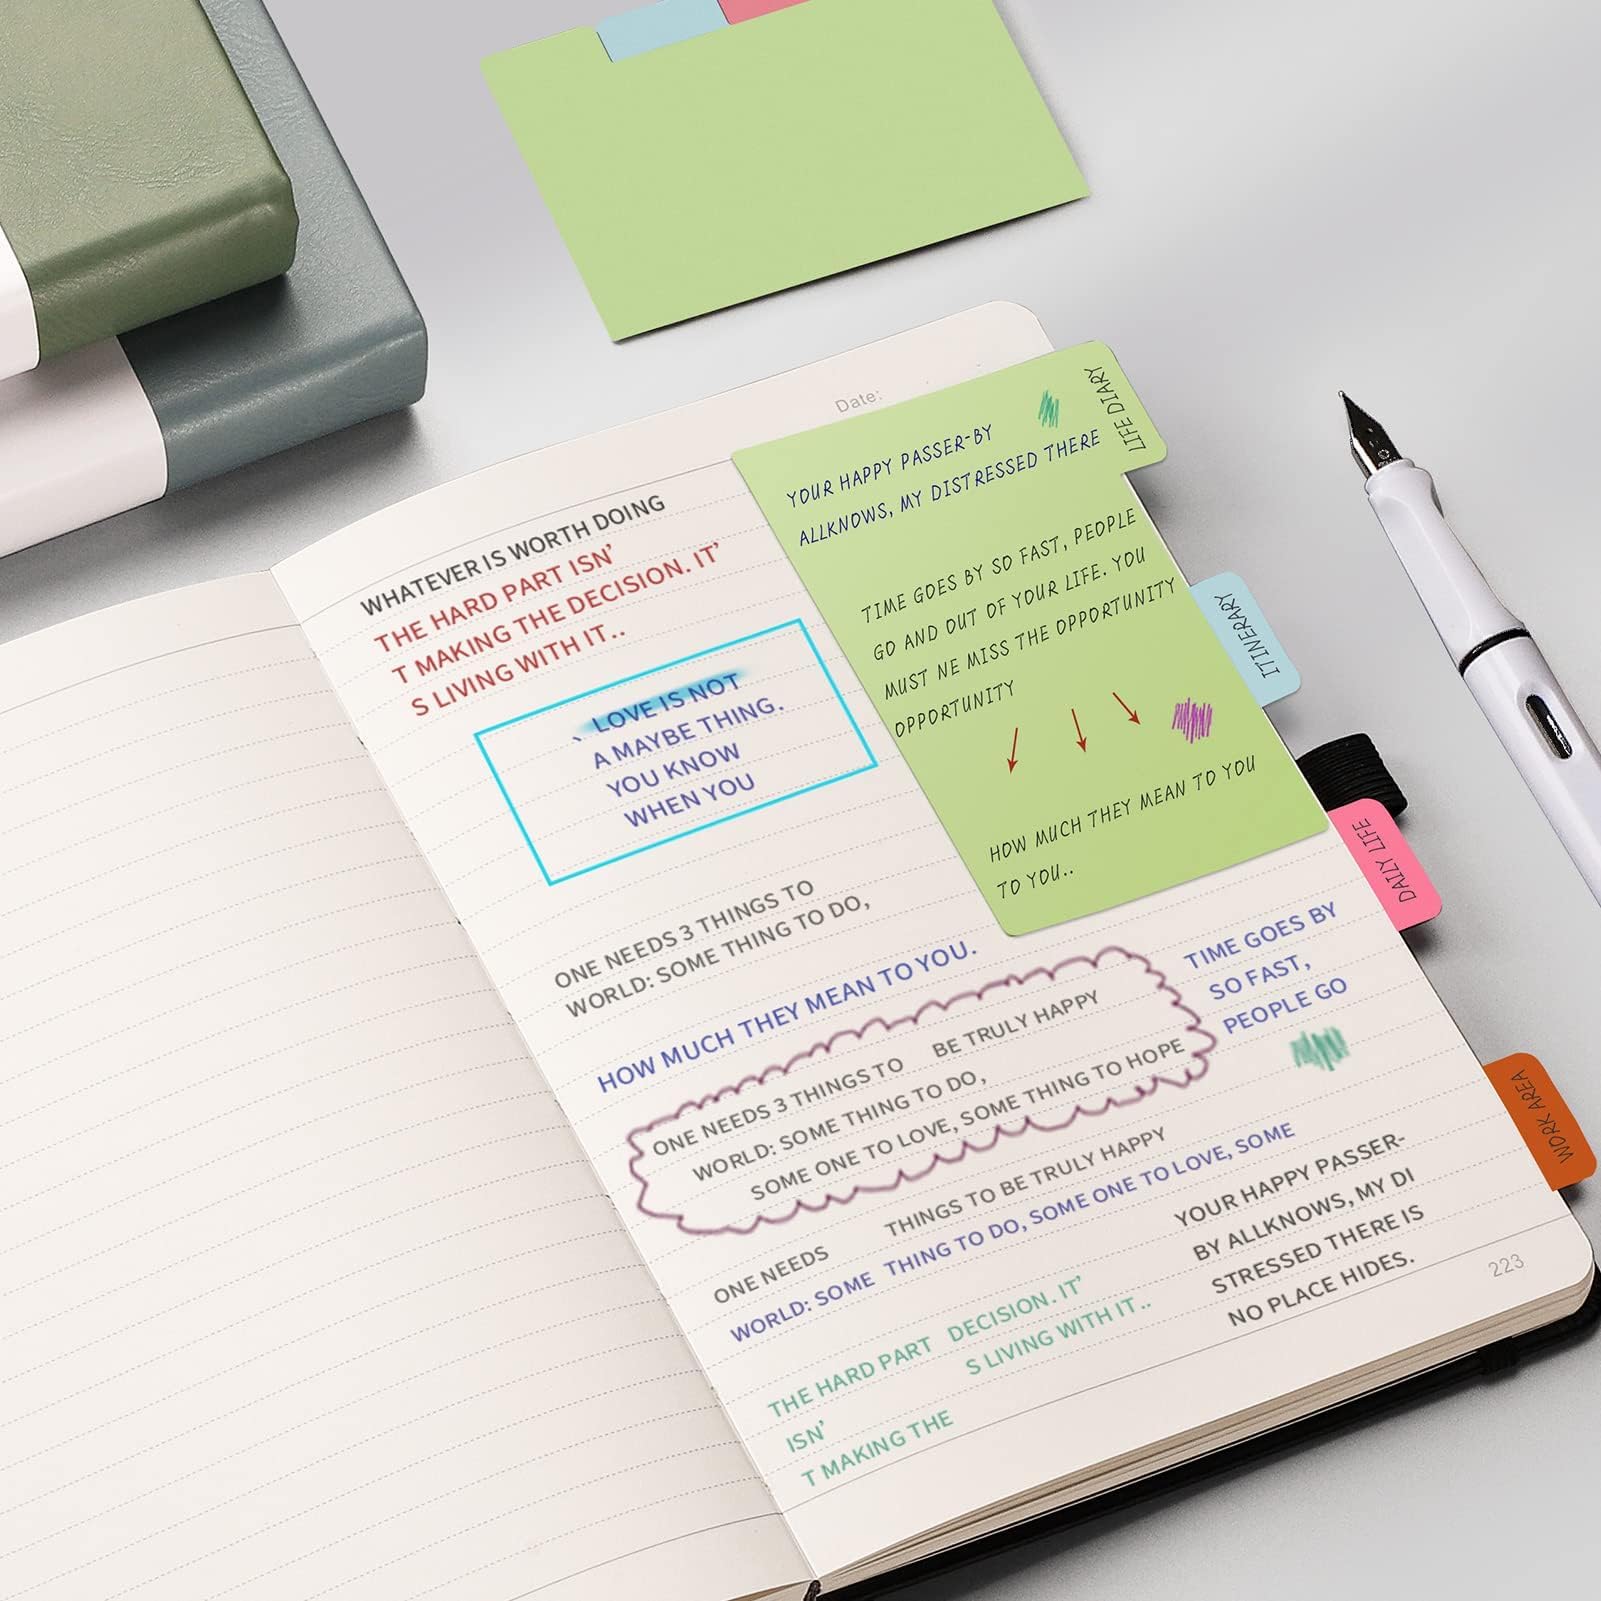 Date:
WHATEVER IS WORTH DOING
THE HARD PART ISN'
T MAKING THE DECISION. IT'
S LIVING WITH IT..
LOVE IS NOT
A MAYBE THING.
YOU KNOW
WHEN YOU
ONE NEEDS 3 THINGS TO
WORLD: SOME THING TO DO,
LIFE DIARY
YOUR HAPPY PASSER-BY
ALLKNOWS, MY DISTRESSED THERE
TIME GOES BY SO FAST, PEOPLE
GO AND OUT OF YOUR LIFE. YOU
MUST NE MISS THE OPPORTUNITY
OPPORTUNITY
HOW MUCH THEY MEAN TO YOU
TO YOU..
ITINERARY
DAILY LIFE
WORK AREA
HOW MUCH THEY MEAN TO YOU.
TIME GOES BY
SO FAST,
PEOPLE GO
ONE NEEDS 3 THINGS TO BE TRULY HAPPY
WORLD: SOME THING TO DO,
SOME ONE TO LOVE, SOME THING TO HOPE
ONE NEEDS THINGS TO BE TRULY HAPPY
WORLD: SOME THING TO DO, SOME ONE TO LOVE, SOME
YOUR HAPPY PASSER-
BY ALLKNOWS, MY DI
STRESSED THERE IS
NO PLACE HIDES.
THE HARD PART DECISION. IT'
ISN' S LIVING WITH IT..
T MAKING THE
223